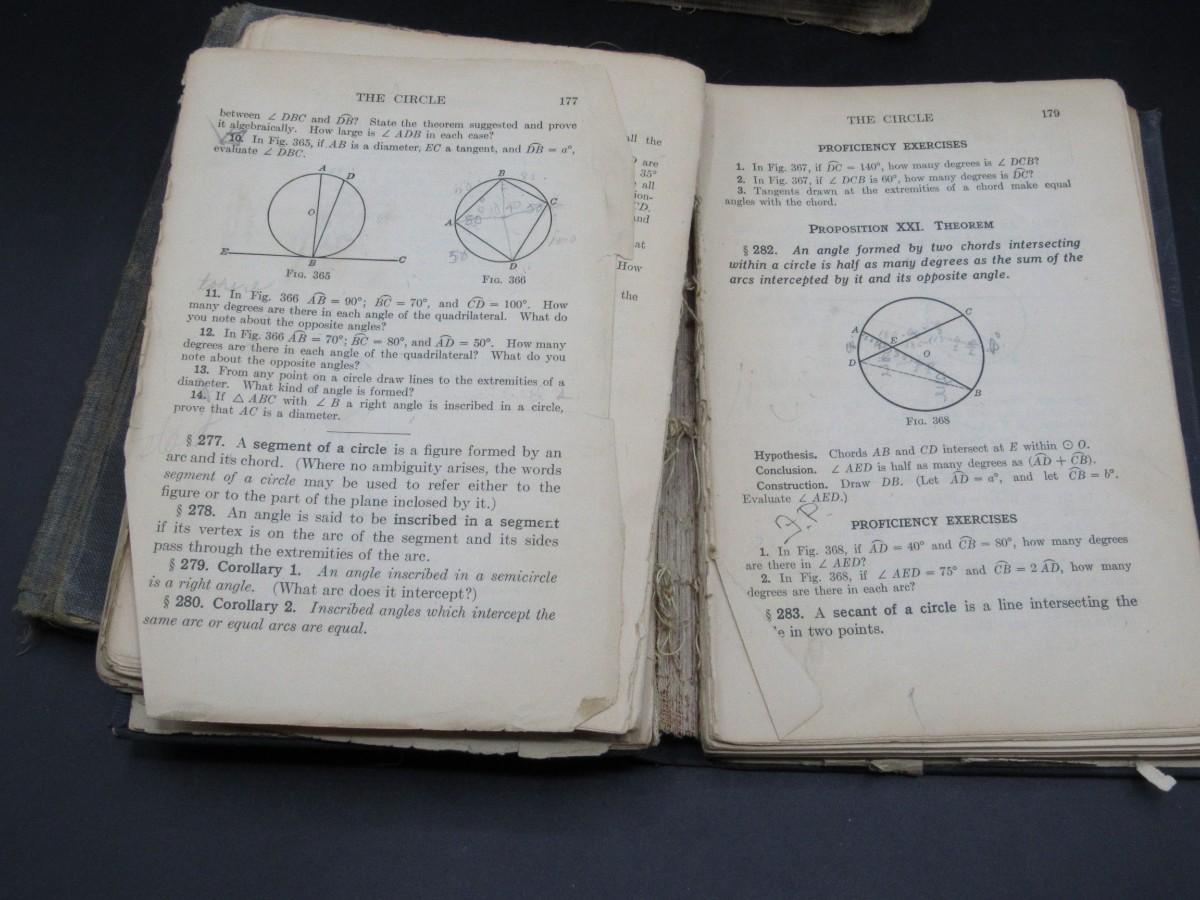 THE CIRCLE 177
between ∠ DBC and D͡B? State the theorem suggested and prove
it algebraically. How large is ∠ ADB in each case?
10. In Fig. 365, if AB is a diameter, EC a tangent, and D͡B = a°,
evaluate ∠ DBC.
A D
O
E B C
FIG. 365
B
A C
D
50
50
FIG. 366
11. In Fig. 366 A͡B = 90°; B͡C = 70°, and C͡D = 100°. How
many degrees are there in each angle of the quadrilateral. What do
you note about the opposite angles?
12. In Fig. 366 A͡B = 70°; B͡C = 80°, and A͡D = 50°. How many
degrees are there in each angle of the quadrilateral? What do you
note about the opposite angles?
13. From any point on a circle draw lines to the extremities of a
diameter. What kind of angle is formed?
14. If △ ABC with ∠ B a right angle is inscribed in a circle,
prove that AC is a diameter.
§ 277. A segment of a circle is a figure formed by an
arc and its chord. (Where no ambiguity arises, the words
segment of a circle may be used to refer either to the
figure or to the part of the plane inclosed by it.)
§ 278. An angle is said to be inscribed in a segment
if its vertex is on the arc of the segment and its sides
pass through the extremities of the arc.
§ 279. Corollary 1. An angle inscribed in a semicircle
is a right angle. (What arc does it intercept?)
§ 280. Corollary 2. Inscribed angles which intercept the
same arc or equal arcs are equal.
all the
are
35°
all
ion-
CD.
and
at
How
the
THE CIRCLE 179
PROFICIENCY EXERCISES
1. In Fig. 367, if D͡C = 140°, how many degrees is ∠ DCB?
2. In Fig. 367, if ∠ DCB is 60°, how many degrees is D͡C?
3. Tangents drawn at the extremities of a chord make equal
angles with the chord.
PROPOSITION XXI. THEOREM
§ 282. An angle formed by two chords intersecting
within a circle is half as many degrees as the sum of the
arcs intercepted by it and its opposite angle.
C
A E
O
D
B
FIG. 368
Hypothesis. Chords AB and CD intersect at E within ⊙ O.
Conclusion. ∠ AED is half as many degrees as (A͡D + C͡B).
Construction. Draw DB. (Let A͡D = a°, and let C͡B = b°.
Evaluate ∠ AED.)
J.P.
PROFICIENCY EXERCISES
1. In Fig. 368, if A͡D = 40° and C͡B = 80°, how many degrees
are there in ∠ AED?
2. In Fig. 368, if ∠ AED = 75° and C͡B = 2 A͡D, how many
degrees are there in each arc?
§ 283. A secant of a circle is a line intersecting the
e in two points.